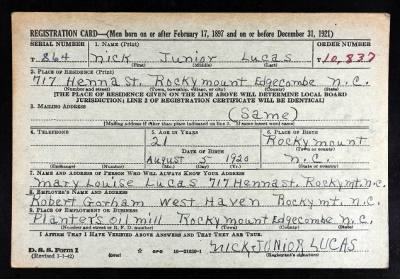 REGISTRATION CARD—(Men born on or after February 17, 1897 and on or before December 31, 1921)
SERIAL NUMBER 1. NAME (Print) ORDER NUMBER
T 864 Nick Junior Lucas T10,837
(First) (Middle) (Last)
2. PLACE OF RESIDENCE (Print)
717 Henna St. Rocky mount Edgecombe N.C.
(Number and street) (Town, township, village, or city) (County) (State)
[THE PLACE OF RESIDENCE GIVEN ON THE LINE ABOVE WILL DETERMINE LOCAL BOARD
JURISDICTION; LINE 2 OF REGISTRATION CERTIFICATE WILL BE IDENTICAL]
3. MAILING ADDRESS
(Same)
[Mailing address if other than place indicated on line 2. If same insert word same]
4. TELEPHONE 5. AGE IN YEARS 6. PLACE OF BIRTH
21 Rocky mount
DATE OF BIRTH (Town or county)
August 5 1920 N.C.
(Exchange) (Number) (Mo.) (Day) (Yr.) (State or country)
7. NAME AND ADDRESS OF PERSON WHO WILL ALWAYS KNOW YOUR ADDRESS
Mary Louise Lucas 717 Henna st. Rocky mt. n.c.
8. EMPLOYER'S NAME AND ADDRESS
Robert Gorham West Haven Rocky mt. N.C.
9. PLACE OF EMPLOYMENT OR BUSINESS
Planter's oil mill Rocky mount Edgecombe N.C.
(Number and street or R. F. D. number) (Town) (County) (State)
I AFFIRM THAT I HAVE VERIFIED ABOVE ANSWERS AND THAT THEY ARE TRUE.
D. S. S. Form 1 GPO 16—21630-1 NICK JUNIOR LUCAS
(Revised 1-1-42) (Registrant's signature)